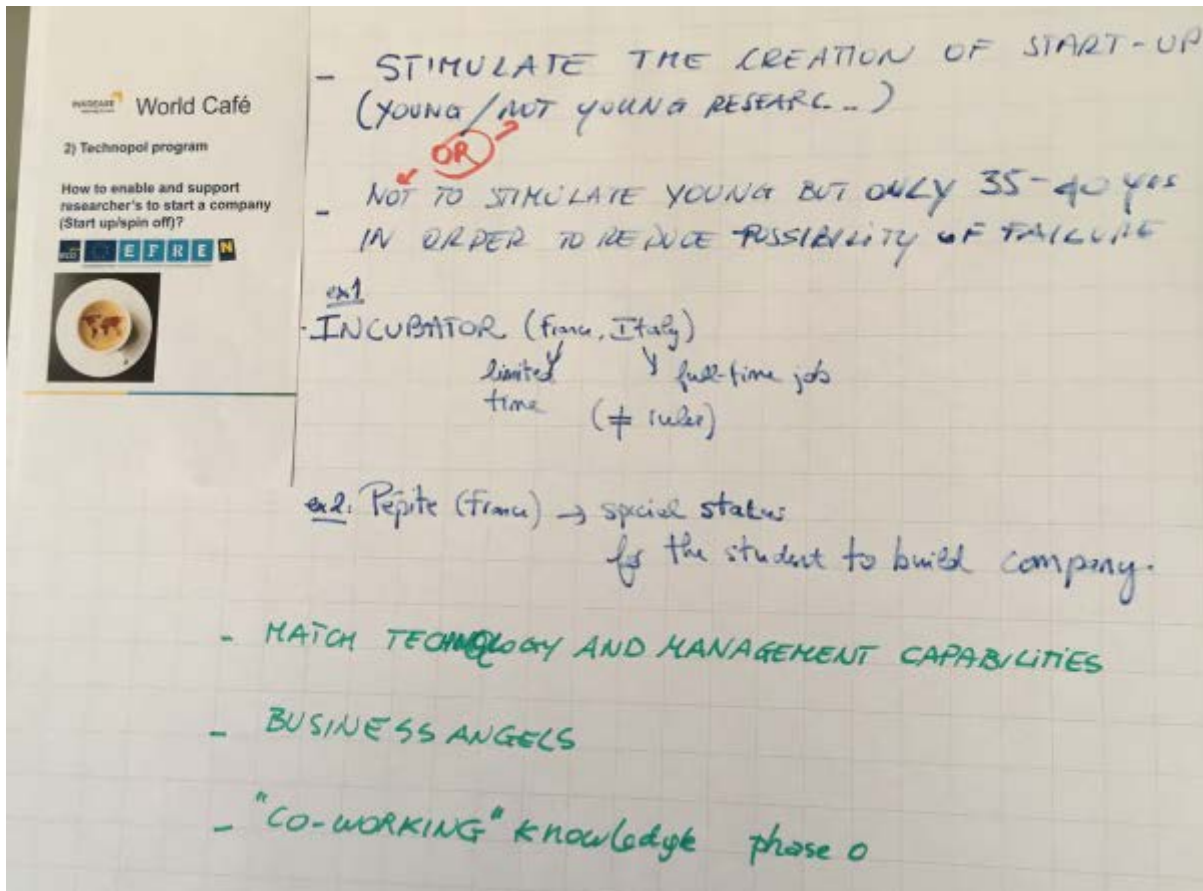 World Café
2) Technopol program
How to enable and support
researcher's to start a company
(Start up/spin off)?
E F R E N
- STIMULATE THE CREATION OF START-UP
(YOUNG / NOT YOUNG RESEARC...)
OR
- NOT TO STIMULATE YOUNG BUT ONLY 35-40 yrs
IN ORDER TO REDUCE POSSIBILITY OF FAILURE
ex1
- INCUBATOR (France, Italy)
limited full-time job
time
(≠ rules)
ex2: Pépite (France) → special status
for the student to build company.
- MATCH TECHNOLOGY AND MANAGEMENT CAPABILITIES
- BUSINESS ANGELS
- "CO-WORKING" knowledge phase 0